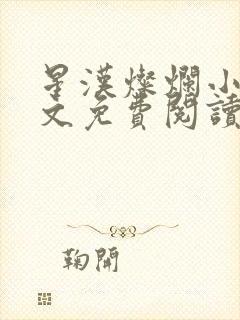 星漢燦爛小
文免費閱讀
鞠開